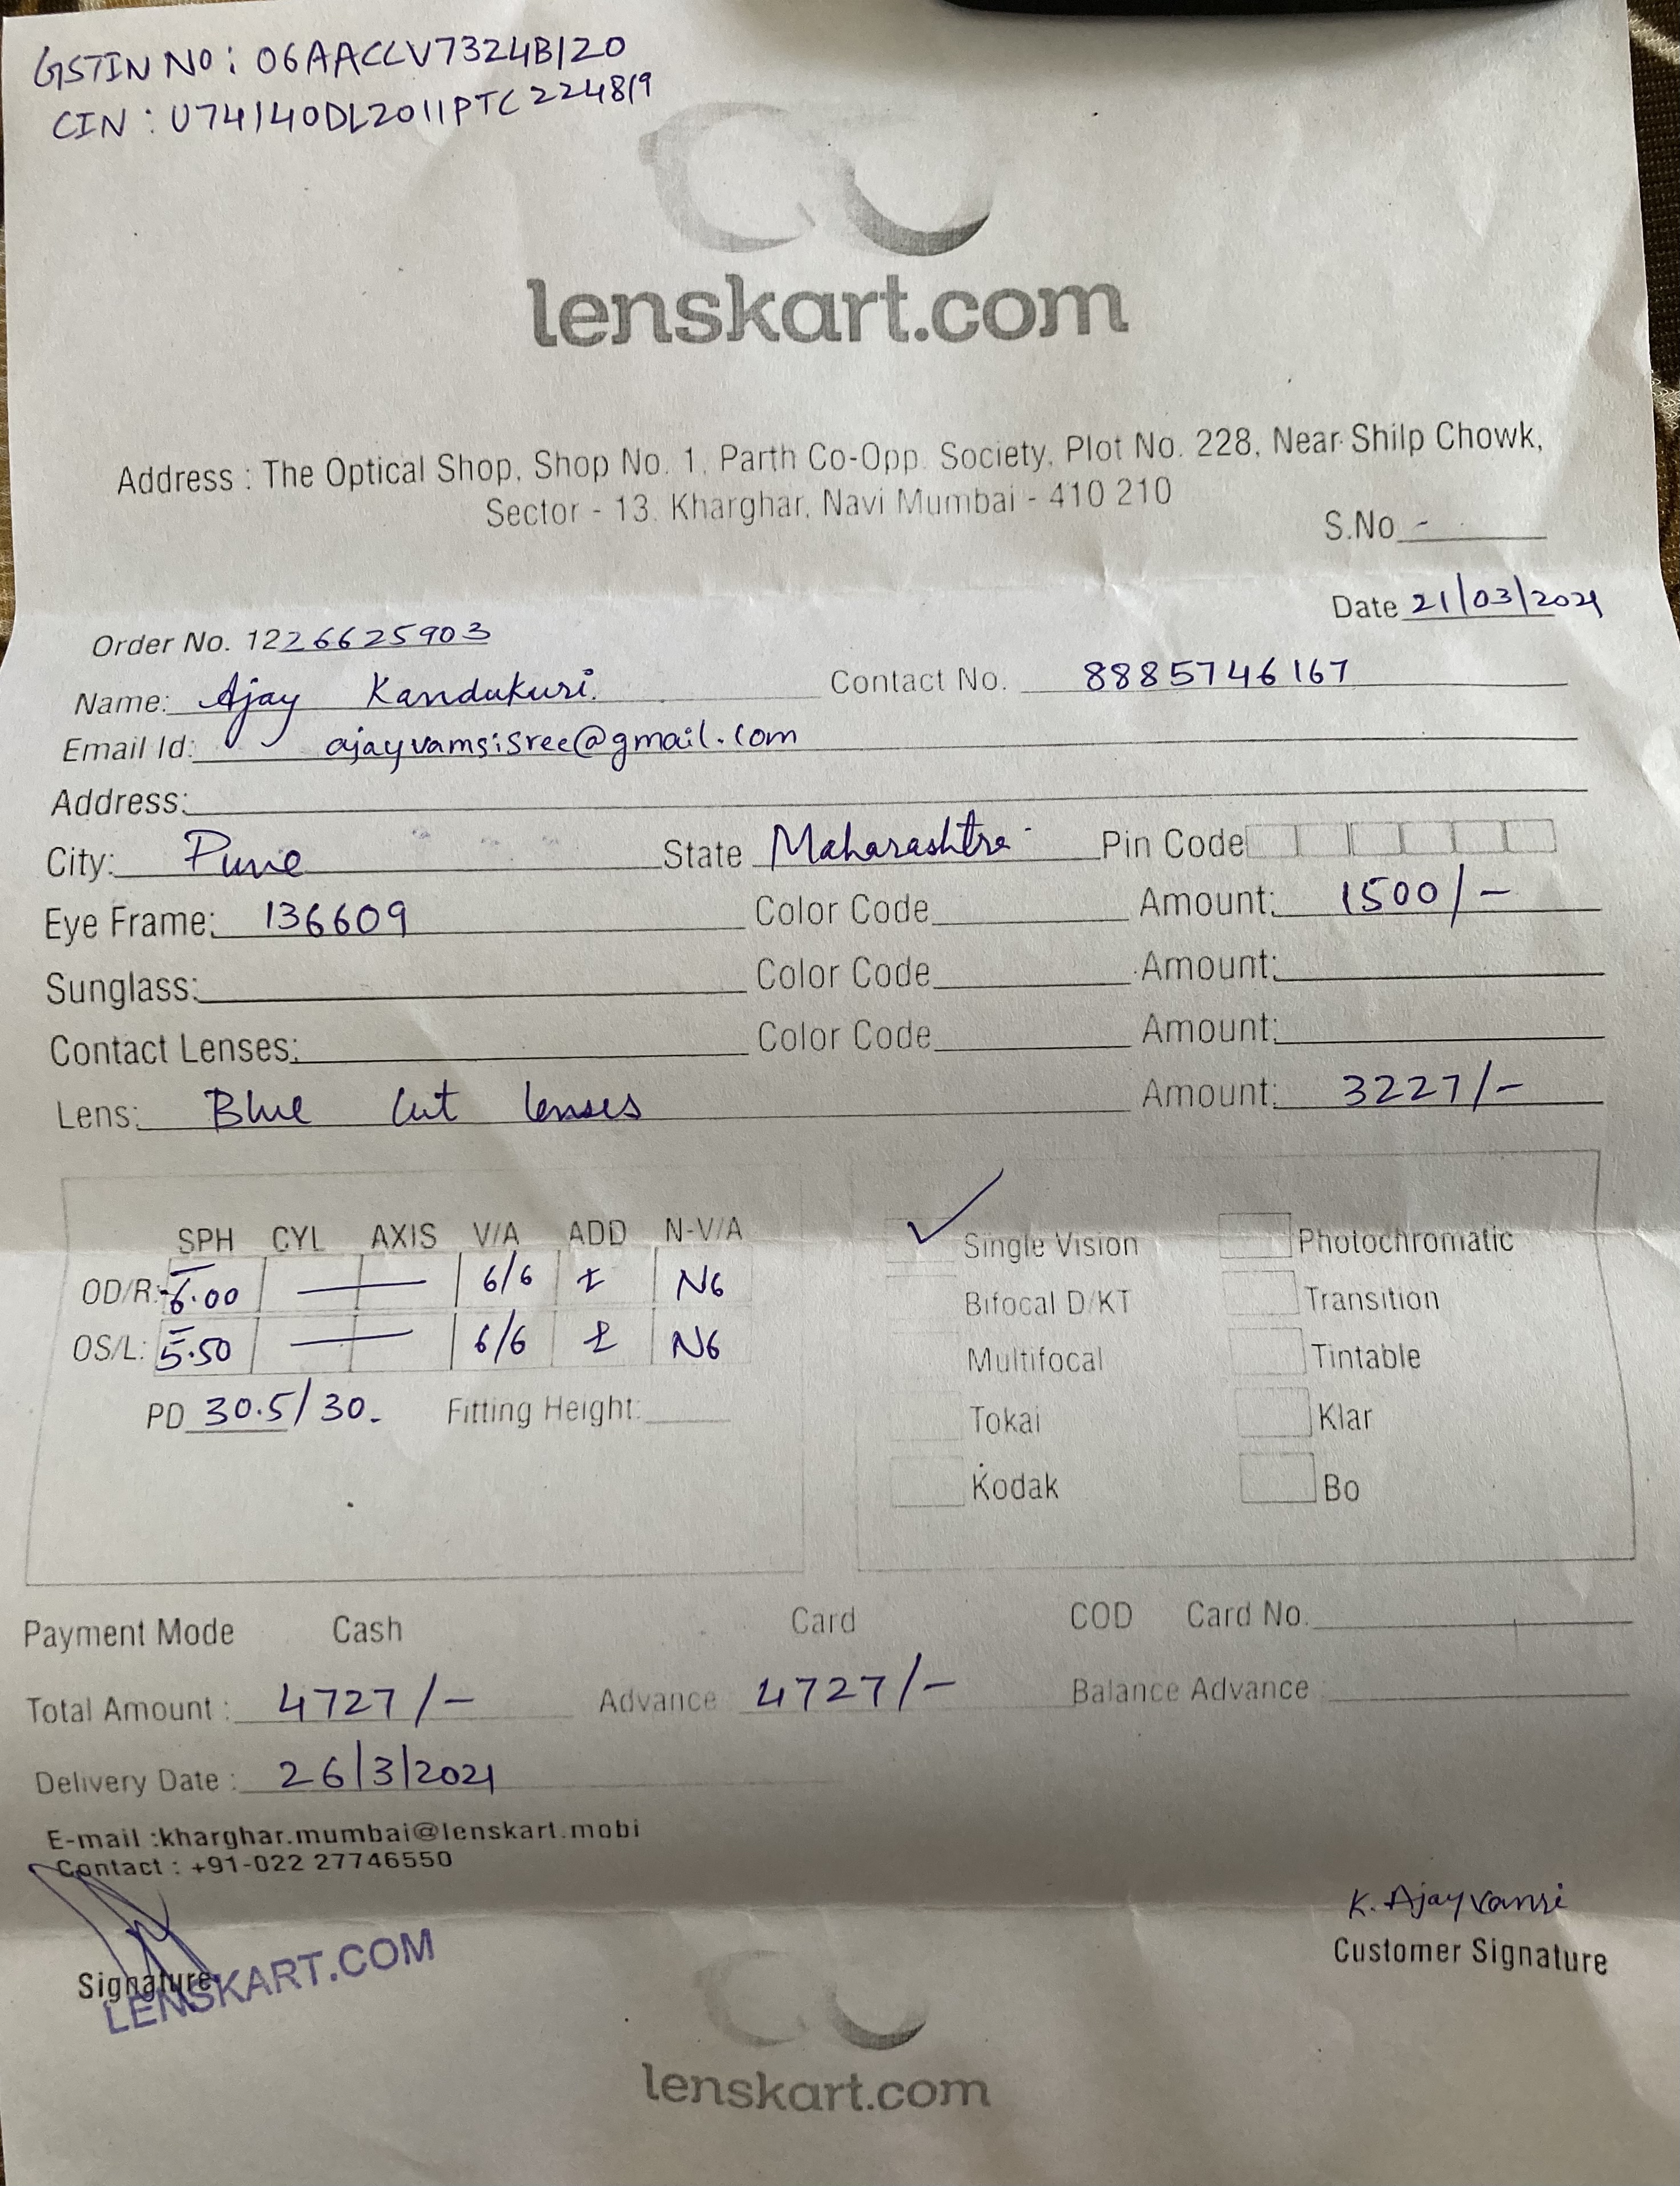 GSTIN NO: 06AACCV7324B1Z0
CIN: U74140DL2011PTC224819
lenskart.com
Address : The Optical Shop, Shop No. 1, Parth Co-Opp. Society, Plot No. 228, Near Shilp Chowk,
Sector - 13, Kharghar, Navi Mumbai - 410 210
S.No -
Date 21/03/2021
Order No. 1226625903
Name: Ajay Kandukuri. Contact No. 8885746167
Email Id: ajayvamsisree@gmail.com
Address:
City: Pune State Maharashtra Pin Code
Eye Frame: 136609 Color Code Amount: 1500/-
Sunglass: Color Code Amount:
Contact Lenses: Color Code Amount:
Lens: Blue Cut lenses Amount: 3227/-
SPH CYL AXIS V/A ADD N-V/A
OD/R: -6.00 — 6/6 N6
OS/L: -5.50 — 6/6 N6
PD 30.5/30. Fitting Height:
Single Vision Photochromatic
Bifocal D/KT Transition
Multifocal Tintable
Tokai Klar
Kodak Bo
Payment Mode Cash Card COD Card No.
Total Amount : 4727/- Advance 4727/- Balance Advance :
Delivery Date : 26/3/2021
E-mail :kharghar.mumbai@lenskart.mobi
Contact : +91-022 27746550
K. Ajayvamsi
Customer Signature
Signature
LENSKART.COM
lenskart.com